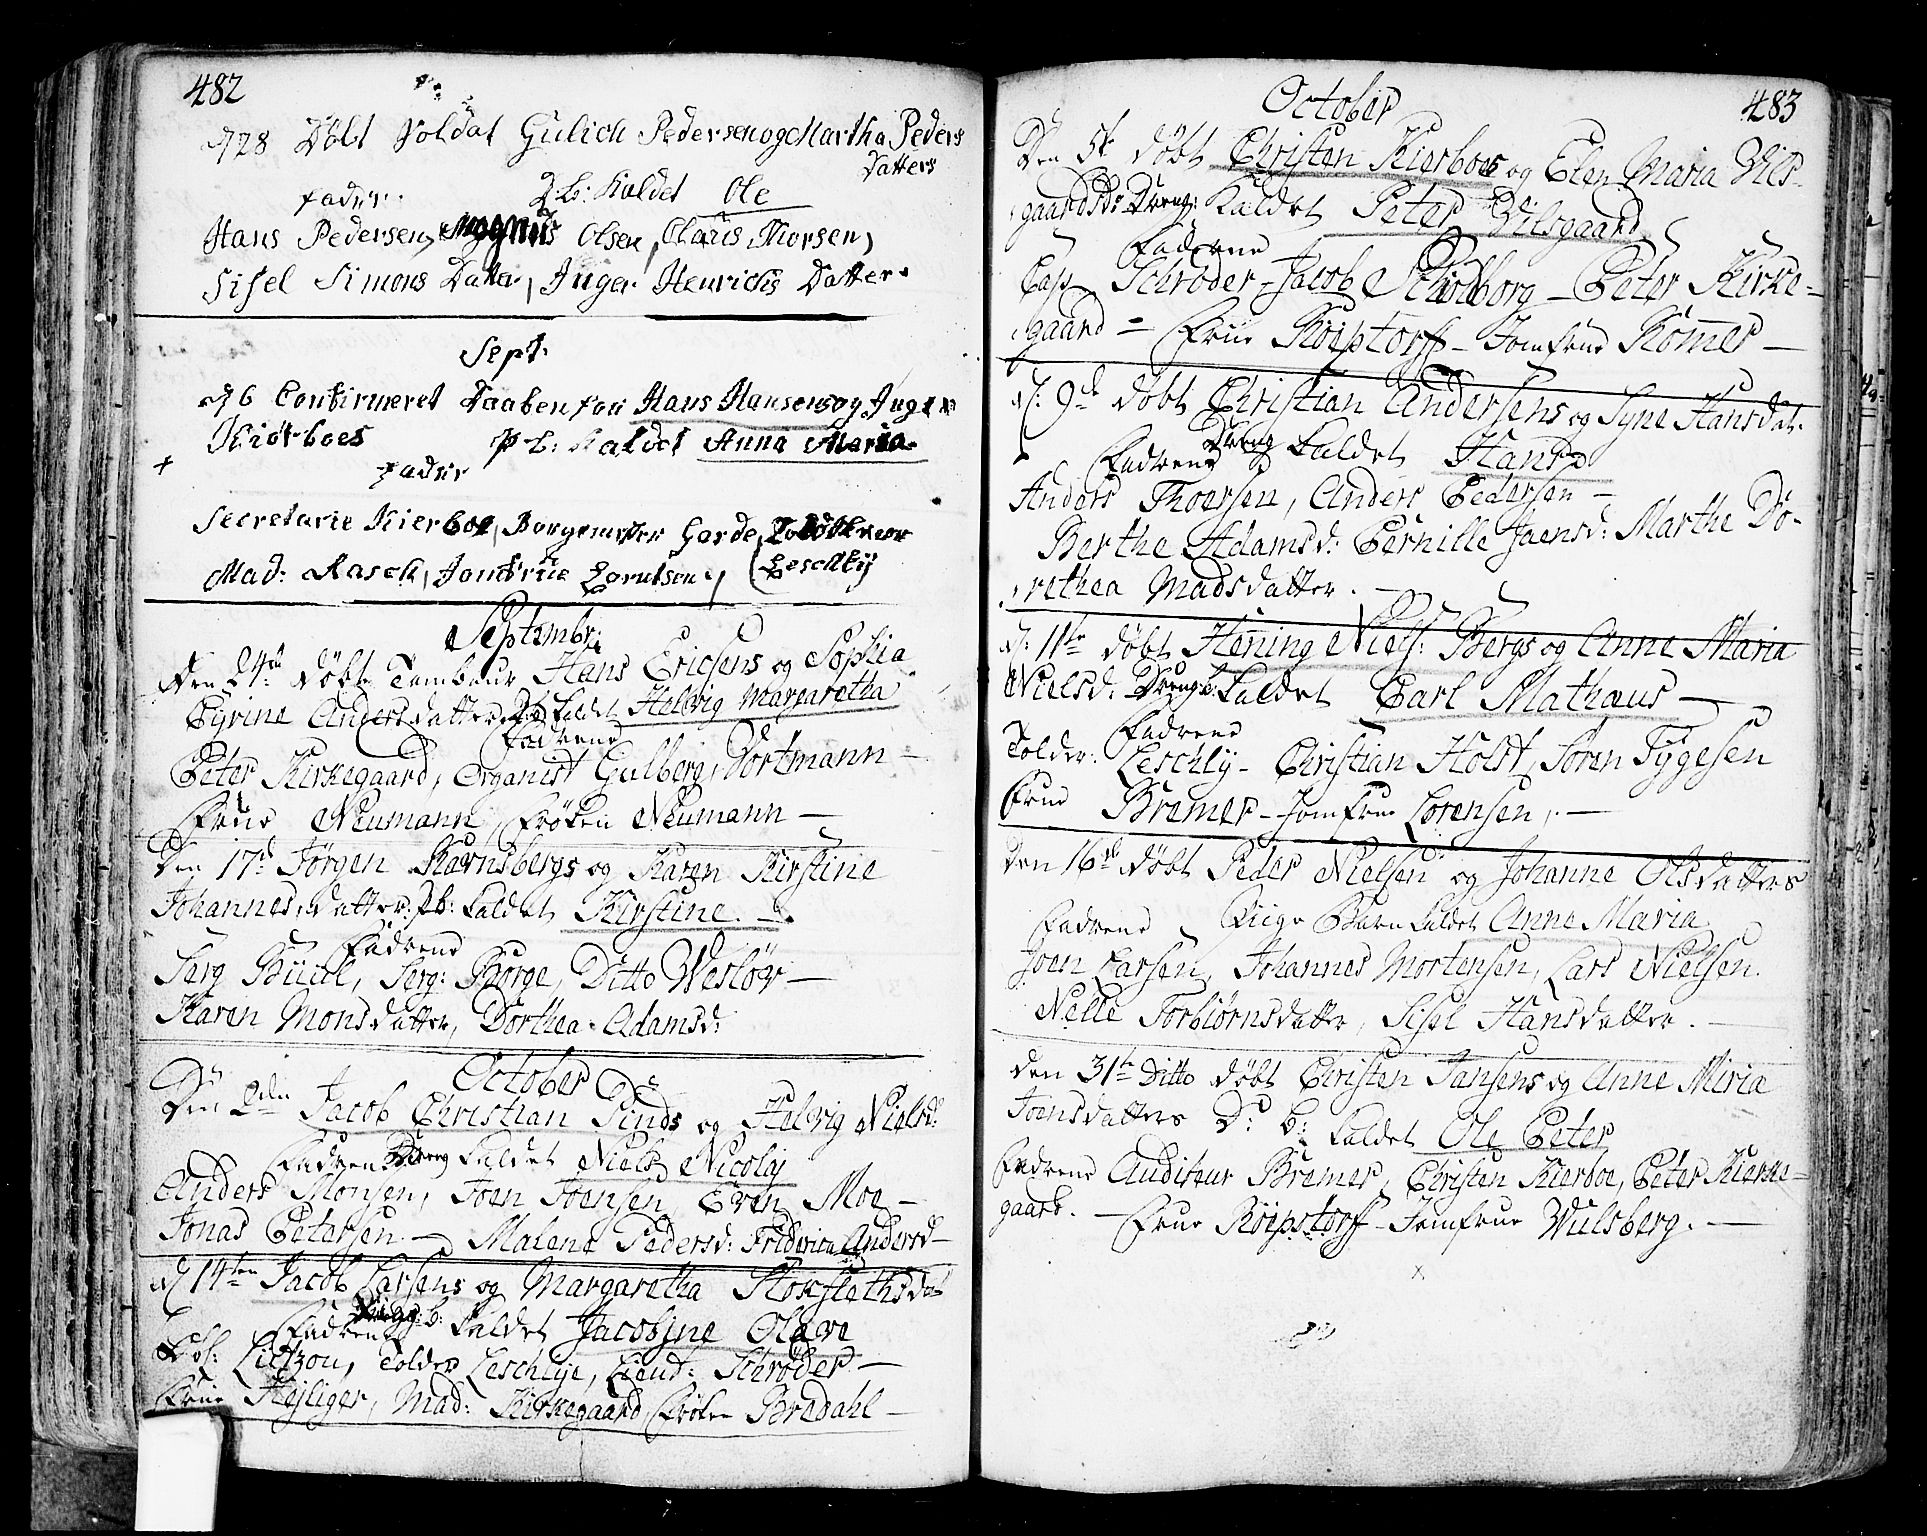 482
d 28 Döbt Soldat Gulich Pedersen og Martha Peders
Datters
fadr: D: b: Kaldet Ole
Hans Pedersen, Magnus Olsen, Claus Thorsen,
Sisel Simons Datter, Inger Henrichs Datter.
Sept:
d 6 Confirmeret Daaben paa Hans Hansens og Inger
Kiörboes P: b: Kaldet Anna Maria
+
Fadr
Secretarie Kierboe, Borgemester Garde,
Mad: Rasch, Jomfrue Lorentsen, Leschly
Septembr:
Den 24de Döbt Tambour Hans Ericsens og Sophia
Cyrine Anders datters P:b: Kaldet Helvig Margaretha
Fadrene
Peter Kirkegaard, Organist Gulberg, Dortmann –
Frue Neumann, Fröken Neumann –
Den 17d Jörgen Ravnsbergs og Karen Kirstine
Johannes datter: P:b: Kaldet Kirstine. –
Fadrene
Serg Büül, Serg: Borge, Ditto Weslöv –
Karen Monsdatter, Dorthea Adamsd:
October
Den 2den Jacob Christian Sinds og Helvig Nielsd:
Fadrene Dreng Kaldet Niels Nicolaj
Anders Monsen, Joen Joensen, Even Moe –
Jonas Petersen – Malene Pedersd: Friderica Andersd –
d 14ten Jacob Larsens og Margaretha Stoksleths dat
Fadrene Piige b: Kaldet Jacobine Olave
Lietzon, Tolder Leschlye, Lieut: Schröder –
Frue Hejliger, Mad: Kirkegaard, Fröken Bredahl –
October 483
Den 5te döbt Christen Kierboes og Elen Maria Vils-
gaards Dreng: Kaldet Peter Vilsgaard
Fadrene
Cap Schröder – Jacob Scholborg – Peter Kirke-
gaard – Frue Röepstorff – Jomfrue Römer –
d: 9de döbt Christian Andersens og Syne Hansdat.
Dreng Kaldet Hans
Fadrene
Anders Thoersen, Anders Pedersen –
Berthe Adamsd: Pernille Joensd: Marthe Do-
rethea Madsdatter. –
d: 11te döbt Henning Niels: Bergs og Anne Maria
Nielsd: Dreng b: Kaldet Carl Mathæus –
Fadrene
Tolder: Leschly – Christian Holst, Sören Tygesen
Frue Bremer – Jomfrue Lorensen, –
Den 16de döbt Peder Nielsen og Johanne Olsdatters
Fadrene Piige Barn Kaldet Anne Maria
Joen Larsen, Johannes Mortensen, Lars Nielsen.
Nelle Torbiörnsdatter, Sisel Hansdatter. –
den 31te Ditto döbt Christen Jansens og Anne Maria
Joensdatters D: b: Kaldet Ole Peter
Fadrene Auditeur Bremer, Christen Kierboe, Peter Kierke-
gaard. – Frue Röepstorff – Jomfrue Wulsberg. –
x